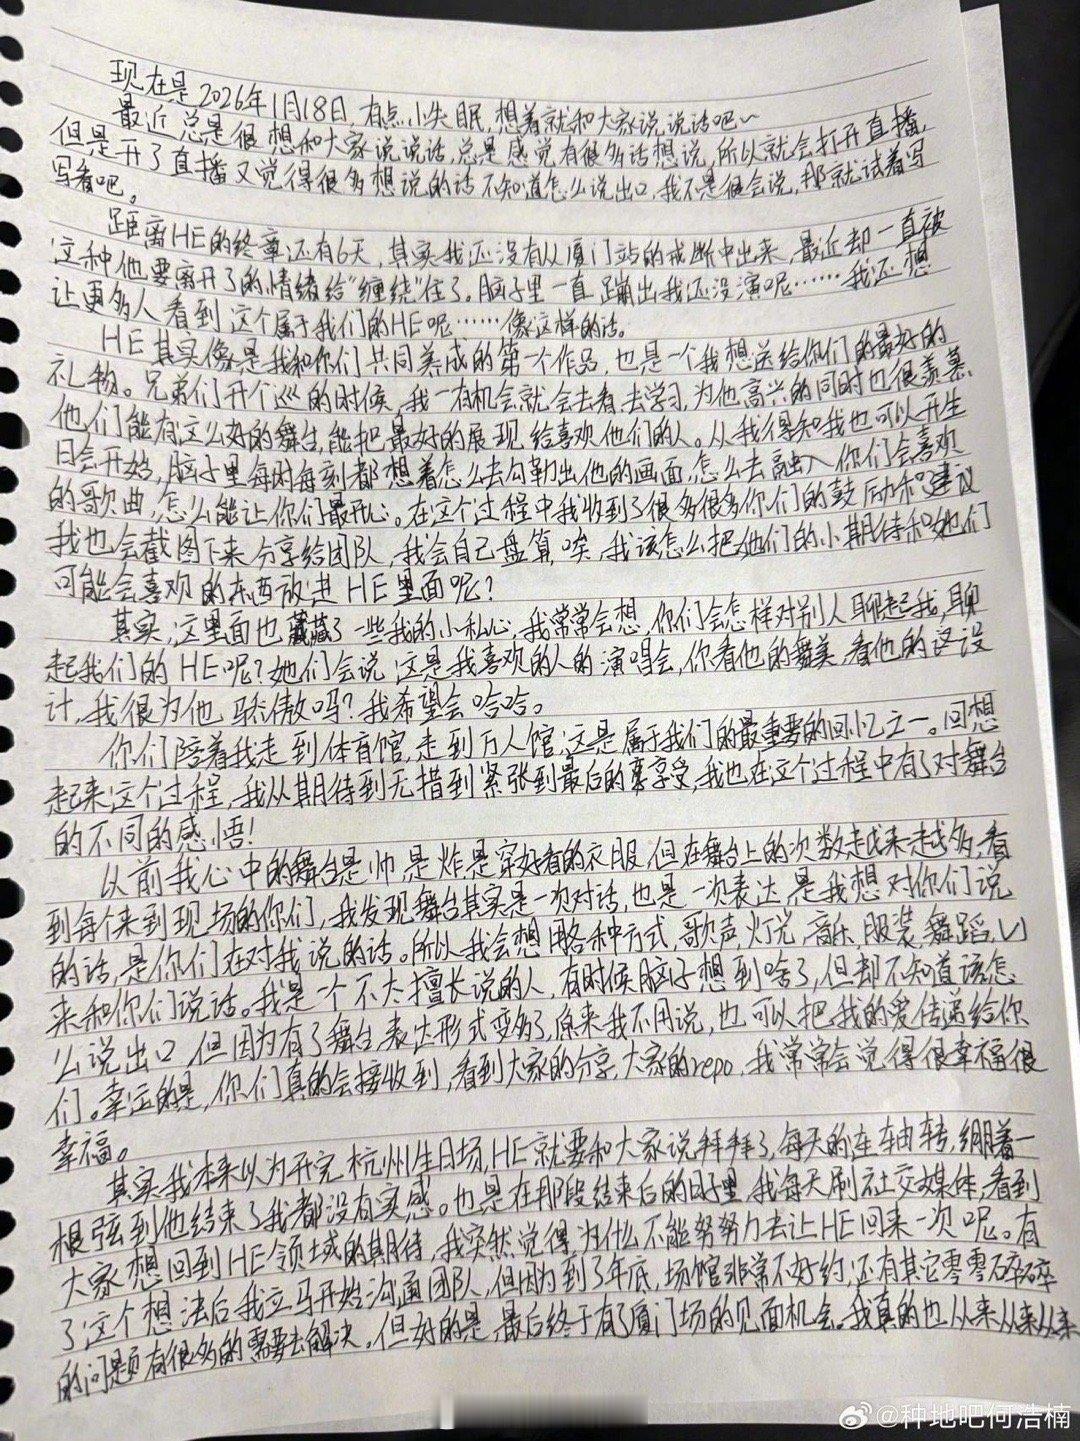 现在是2026年1月18日,有点小失眠,想着就和大家说说话吧~
最近总是很想和大家说说话,总是感觉有很多话想说,所以就会打开直播,
但是开了直播又觉得很多想说的话不知道怎么说出口,我不是很会说,那就试着写
写看吧。
距离HE的终章还有6天,其实我还没有从厦门站的戒断中出来,最近却一直被
这种他要离开了的情绪给"缠绕"住了。脑子里一直蹦出我还没演呢……我还想
让更多人看到这个属于我们的HE呢……像这样的话。
HE其实像是我和你们共同养成的第一个作品,也是一个我想送给你们的最好的
礼物。兄弟们开个巡的时候,我一有机会就会去看,去学习,为他高兴的同时也很羡慕,
他们能有这么好的舞台,能把最好的展现给喜欢他们的人。从我得知我也可以开生
日会开始,脑子里每时每刻都想着怎么去勾勒出他的画面,怎么去融入你们会喜欢
的歌曲,怎么能让你们最开心。在这个过程中我收到了很多很多你们的鼓励和建议
我也会截图下来分享给团队,我会自己盘算,唉,我该怎么把她们的小期待和她们
可能会喜欢的东西放进HE里面呢?
其实,这里面也藏了一些我的小私心,我常常会想,你们会怎样对别人聊起我,聊
起我们的HE呢?她们会说,这是我喜欢的人的演唱会,你看他的舞美,看他的设
计,我很为他骄傲吗?我希望会哈哈。
你们陪着我走到体育馆,走到万人馆,这是属于我们的最重要的回忆之一。回想
起来这个过程,我从期待到无措到紧张到最后的享受,我也在这个过程中有了对舞台
的不同的感悟!
以前我心中的舞台是帅是炸是穿好看的衣服,但在舞台上的次数越来越多,看
到每个来到现场的你们,我发现舞台其实是一次对话,也是一次表达,是我想对你们说
的话,是你们在对我说的话。所以我会想用各种方式,歌声,灯光,音乐,服装,舞蹈,
来和你们说话。我是一个不太擅长说的人,有时候脑子想到啥了,但却不知道该怎
么说出口,但因为有了舞台,表达形式变多了,原来我不用说,也可以把我的爱传递给你
们。幸运的是,你们真的会接收到,看到大家的分享,大家的repo,我常常会觉得很幸福很
幸福。
其实我本来以为开完杭州生日场,HE就要和大家说拜拜了,每天的连轴转,绷着一
根弦到他结束了我都没有实感。也是在那段结束后的日子里,我每天刷社交媒体,看到
大家想回到HE领域的期待,我突然觉得为什么不能努努力去让HE回来一次呢。有
了这个想法后我立马开始沟通团队,但因为到了年底,场馆非常不好约,还有其它零零碎碎
的问题有很多的需要去解决,但好的是,最后终于有了厦门场的见面机会。我真的也从来从来从来
@种地吧何浩楠